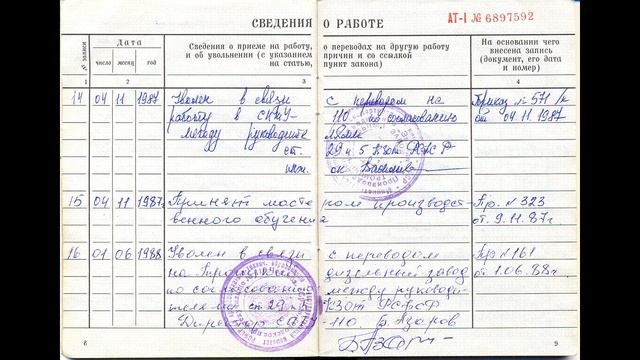 СВЕДЕНИЯ О РАБОТЕ
АТ-I № 6897592
№ записи
Дата
число месяц год
Сведения о приеме на работу, о переводах на другую работу
и об увольнении (с указанием причин и со ссылкой
на статью, пункт закона)
На основании чего
внесена запись
(документ, его дата
и номер)
1 2 3 4
14 04 11 1987 Уволен в связи с переводом на Приказ № 571/к
работу в 110 по согласованию от 04.11.1987
между руководите лями
ст. 29 п 5 КЗоТ РСФСР
15 04 11 1987 Принят масте ром производст- Пр. № 323
венного обучения от 9.11.87г.
16 01 06 1988 Уволен в связи с переводом Пр № 161
на дизельный завод от 1.06.88г.
по согласованию между руководи-
телями ст 29 п 5 КЗОТ РСФСР
Директор 110 В. Азаров
8 9